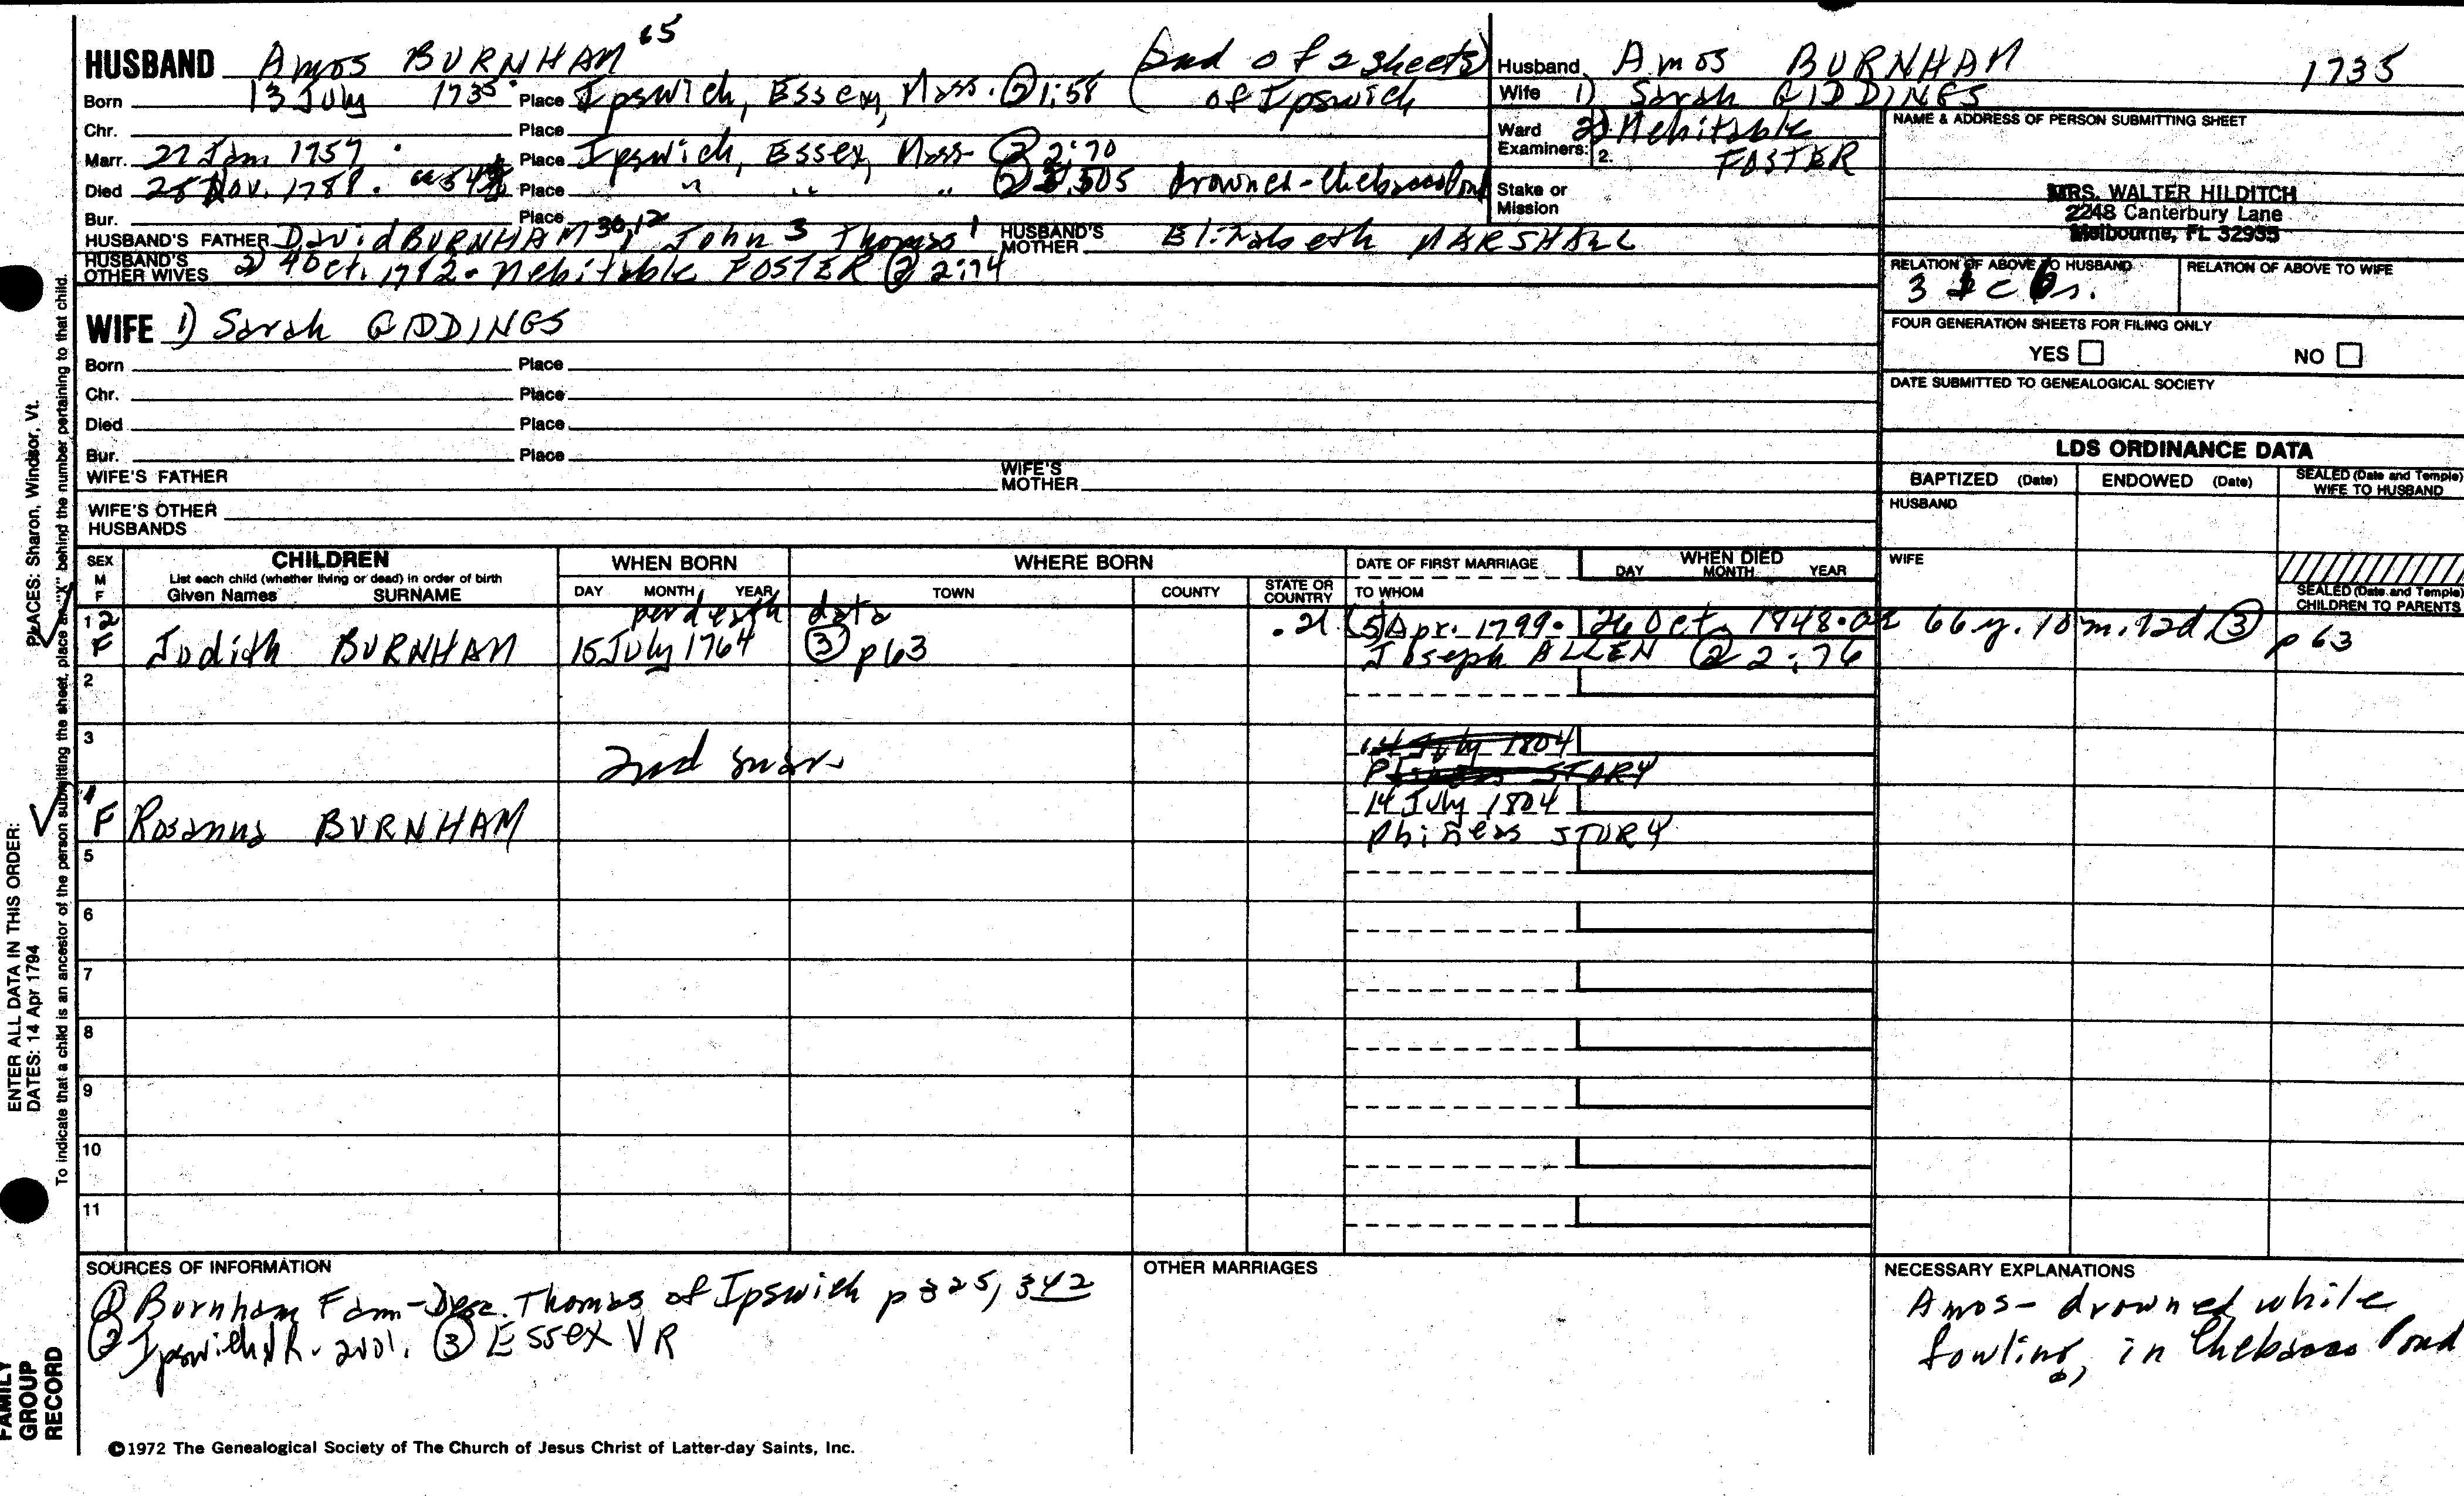 HUSBAND Amos BURNHAM 65 (2nd of 2 sheets)
Born 13 July 1735 Place Ipswich, Essex, Mass. ② 1:58 of Ipswich
Chr. Place
Marr. 27 Jan 1757 . Place Ipswich, Essex, Mass ② 2:70
Died 25 Nov. 1788. Place " " " ② 505 drowned - Chebacco Pond
Bur. Place
HUSBAND'S FATHER David BURNHAM 30, 12, John 3 Thomas 1 HUSBAND'S MOTHER Elizabeth MARSHALL
HUSBAND'S OTHER WIVES 2) 4 Oct. 1782. Mehitable FOSTER ② 2:74
WIFE 1) Sarah GIDDINGS
Born Place
Chr. Place
Died Place
Bur. Place
WIFE'S FATHER WIFE'S MOTHER
WIFE'S OTHER HUSBANDS
Husband Amos BURNHAM 1735
Wife 1) Sarah GIDDINGS
Ward Examiners: 2) Mehitable
2. FOSTER
Stake or Mission
NAME & ADDRESS OF PERSON SUBMITTING SHEET
MRS. WALTER HILDITCH
2248 Canterbury Lane
Melbourne, FL 32935
RELATION OF ABOVE TO HUSBAND RELATION OF ABOVE TO WIFE
FOUR GENERATION SHEETS FOR FILING ONLY
YES NO
DATE SUBMITTED TO GENEALOGICAL SOCIETY
LDS ORDINANCE DATA
BAPTIZED (Date) ENDOWED (Date) SEALED (Date and Temple) WIFE TO HUSBAND
HUSBAND
WIFE
SEALED (Date and Temple) CHILDREN TO PARENTS
SEX M F CHILDREN WHEN BORN WHERE BORN DATE OF FIRST MARRIAGE WHEN DIED
List each child (whether living or dead) in order of birth
Given Names SURNAME DAY MONTH YEAR TOWN COUNTY STATE OR COUNTRY TO WHOM DAY MONTH YEAR
1 12 per death data .21 (5) Apr. 1799. 26 Oct. 1848. 66 y. 10 m. 12d ③
F Judith BURNHAM 15 July 1764 ③ p 63 Joseph ALLEN ② 2:76 p 63
2
3 14 July 1804
2nd mar. STORY
4 14 July 1804
F Rosanna BURNHAM Phineas STORY
5
6
7
8
9
10
11
SOURCES OF INFORMATION
① Burnham Fam - Desc. Thomas of Ipswich p 325, 342
② Ipswich VR. 2vol. ③ Essex VR
OTHER MARRIAGES
NECESSARY EXPLANATIONS
Amos - drowned while
fowling, in Chebacco Pond
©1972 The Genealogical Society of The Church of Jesus Christ of Latter-day Saints, Inc.
ENTER ALL DATA IN THIS ORDER:
DATES: 14 Apr 1794 PLACES: Sharon, Windsor, Vt.
To indicate that a child is an ancestor of the person submitting the sheet, place an "X" behind the number pertaining to that child.
FAMILY
GROUP
RECORD